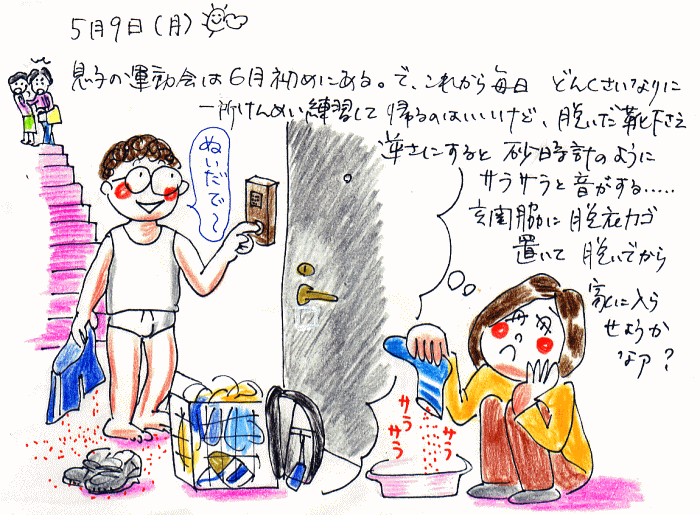 5月9日(月)
息子の運動会は6月初めにある。で、これから毎日 どんくさいなりに
一所けんめい練習して 帰るのはいいけど、脱いだ靴下さえ
逆さにすると 砂時計のように
サラサラと音がする.....
玄関脇に 脱衣カゴ
置いて 脱いでから
家に入ら
せようか
なア?
ぬいだで〜
サラ
サラ
サラ